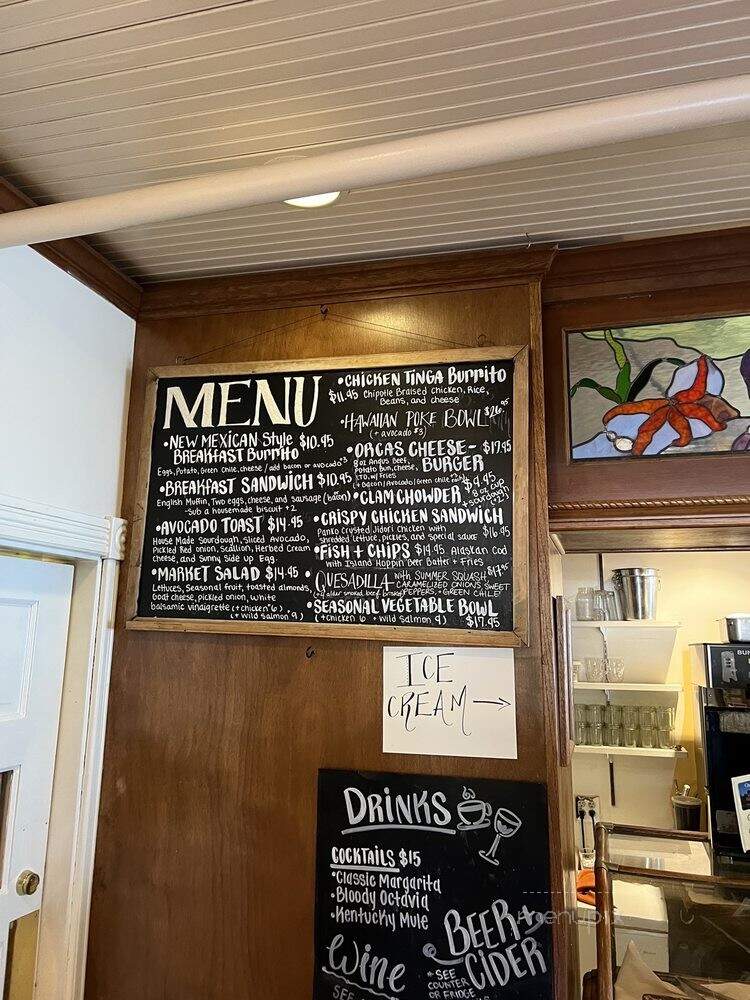 MENU
•NEW MEXICAN Style $10.95
BREAKFAST Burrito
Eggs, Potato, Green Chile, cheese / add bacon or avocado +3
•BREAKFAST SANDWICH $10.95
English Muffin, Two eggs, cheese, and sausage (bacon)
-Sub a housemade biscuit +2
•AVOCADO TOAST $14.95
House Made Sourdough, Sliced Avocado,
Pickled Red Onion, Scallion, Herbed Cream
cheese, and Sunny Side up Egg.
•MARKET SALAD $14.95
Lettuces, Seasonal fruit, toasted almonds,
Goat cheese, pickled onion, white
balsamic vinaigrette (+chicken 6)
(+ wild salmon 9)
•CHICKEN TINGA Burrito
$11.95 Chipotle Braised Chicken, Rice,
Beans, and cheese
•HAWAIIAN POKE BOWL $26.95
(+ avocado $3)
•ORCAS CHEESE- $17.95
BURGER
8 oz Angus Beef,
Potato Bun, cheese,
LTO, w/ Fries
(+ Bacon / Avocado / Green chile
•CLAM CHOWDER $9.95
8 oz cup
+ sourdough
(+2)
•CRISPY CHICKEN SANDWICH
Panko Crusted Jidori Chicken with $16.95
shredded lettuce, pickles, and special sauce
•FISH + CHIPS $19.95 Alaskan Cod
with Island Hoppin Beer Batter + Fries
•QUESADILLA with SUMMER SQUASH, $17.95
CARAMELIZED ONIONS SWEET
PEPPERS, + GREEN CHILE
•SEASONAL VEGETABLE BOWL
(+chicken 6 + wild salmon 9) $17.95
ICE
CREAM →
DRINKS
COCKTAILS $15
•Classic Margarita
•Bloody Octavia
•Kentucky Mule
BEER +
CIDER
-SEE
COUNTER
OR FRIDGE
Wine
SEE
BUNN
menupix